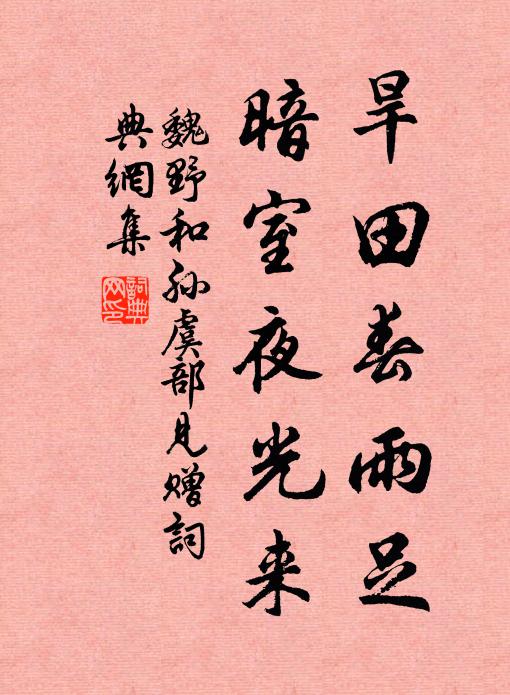 旱田春雨足
暗室夜光来
魏野和孙虞部見赠詞
典網集
詞典
网印